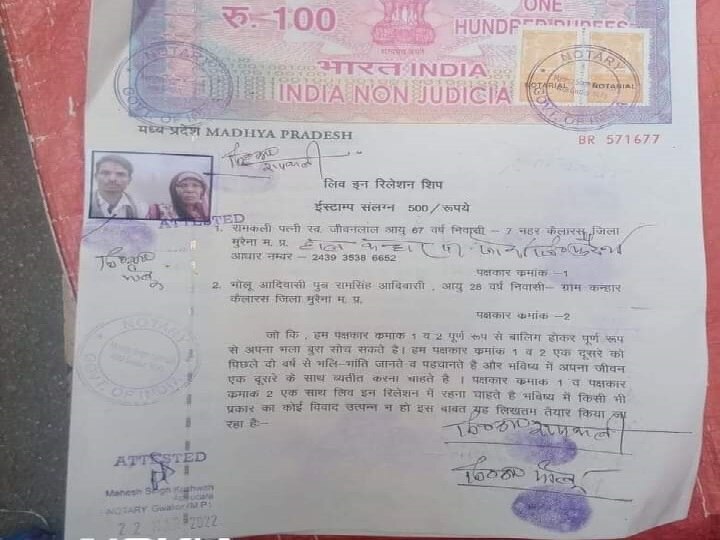 रु. 100
ONE
HUNDRED RUPEES
सत्यमेव जयते
भारत INDIA
INDIA NON JUDICIA
NOTARY
GOVT. OF INDIA
NOTARY
NOTARIAL NOTARIAL
GOVT. OF INDIA
मध्य प्रदेश MADHYA PRADESH
BR 571677
रामकली
लिव इन रिलेशन शिप
ईस्टाम्प संलग्न 500/रूपये
ATTESTED
1. रामकली पत्नी स्व. जीवनलाल आयु 67 वर्ष निवासी – 7 नहर कैलारस जिला
मुरैना म. प्र.
आधार नम्बर – 2439 3538 6652
पक्षकार कमांक –1
2. भोलू आदिवासी पुत्र रामसिंह आदिवासी , आयु 28 वर्ष निवासी– ग्राम कन्हार
कैलारस जिला मुरैना म. प्र.
पक्षकार कमांक –2
भोलू
NOTARY
GOVT. OF INDIA
जो कि , हम पक्षकार कमांक 1 व 2 पूर्ण रूप से बालिग होकर पूर्ण रूप
से अपना भला बुरा सोच सकते है। हम पक्षकार कमांक 1 व 2 एक दूसरे को
पिछले दो वर्ष से भलि–भांति जानते व पहचानते है और भविष्य में अपना जीवन
एक दूसरे के साथ व्यतीत करना चाहते है । पक्षकार कमांक 1 व पक्षकार
कमांक 2 एक साथ लिव इन रिलेशन में रहना चाहते है भबिष्य में किसी भी
प्रकार का कोई विवाद उत्पन्न न हो इस बाबत यह लिखतम तैयार किया जा
रहा है:–
रामकली
भोलू
ATTESTED
Mahesh Singh Kushwah
Advocate
NOTARY Gwalior (M.P.)
22 MAR 2022